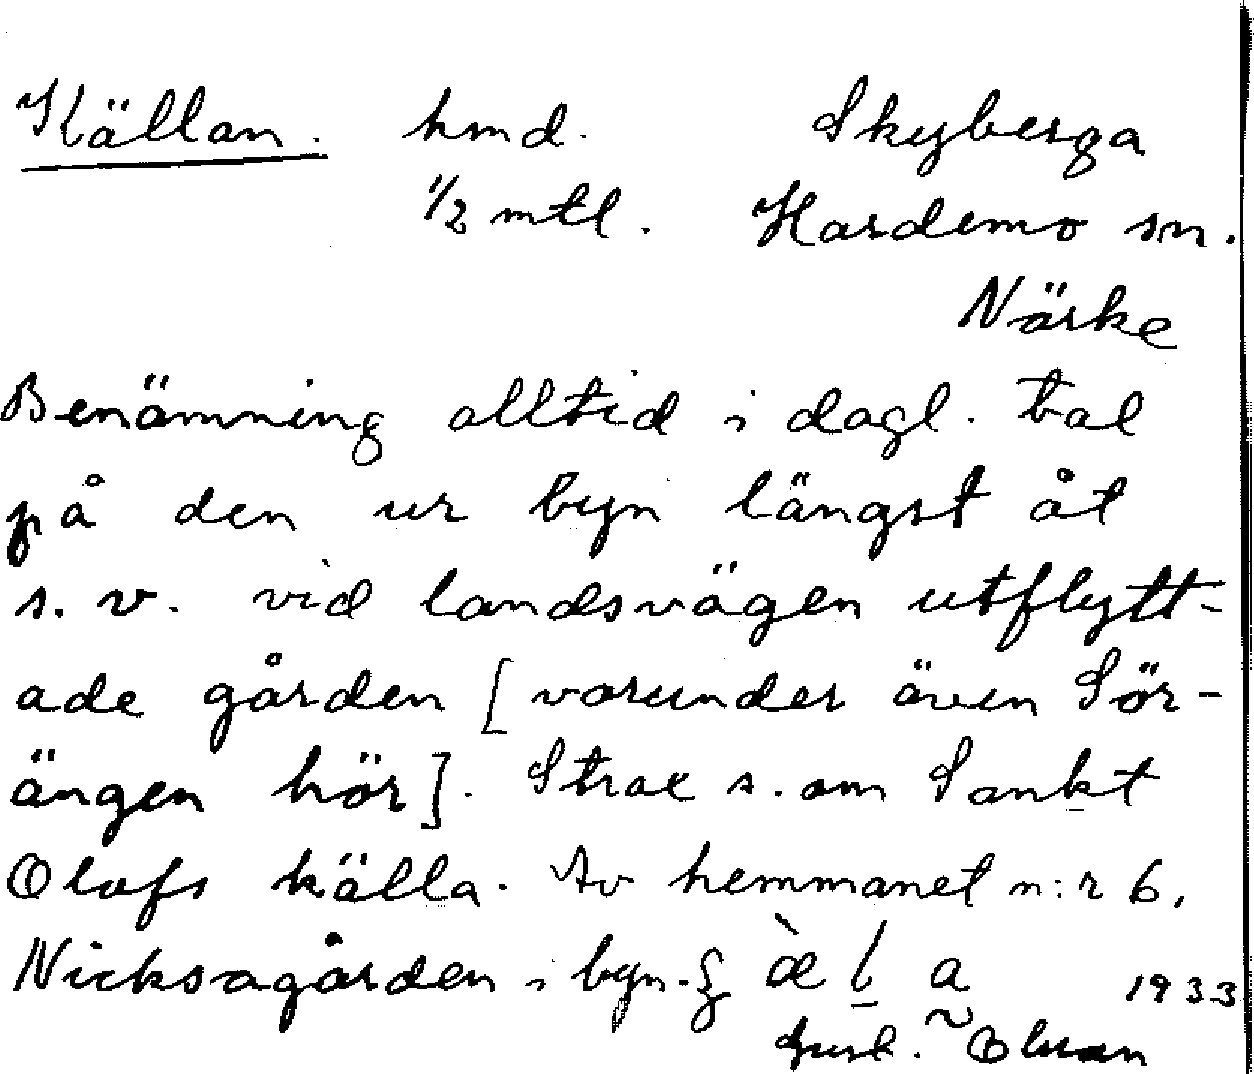 Källan. hmd. Skyberga
1/2 mtl. Hardemo sn.
Närke
Benämning alltid i dagl. tal
på den ur byn längst åt
s. v. vid landsvägen utflytt-
ade gården [varunder även Sör-
ängen hör]. Strax s. om Sankt
Olofs källa. Av hemmanet n:r 6,
Nicksagården i byn. 1933